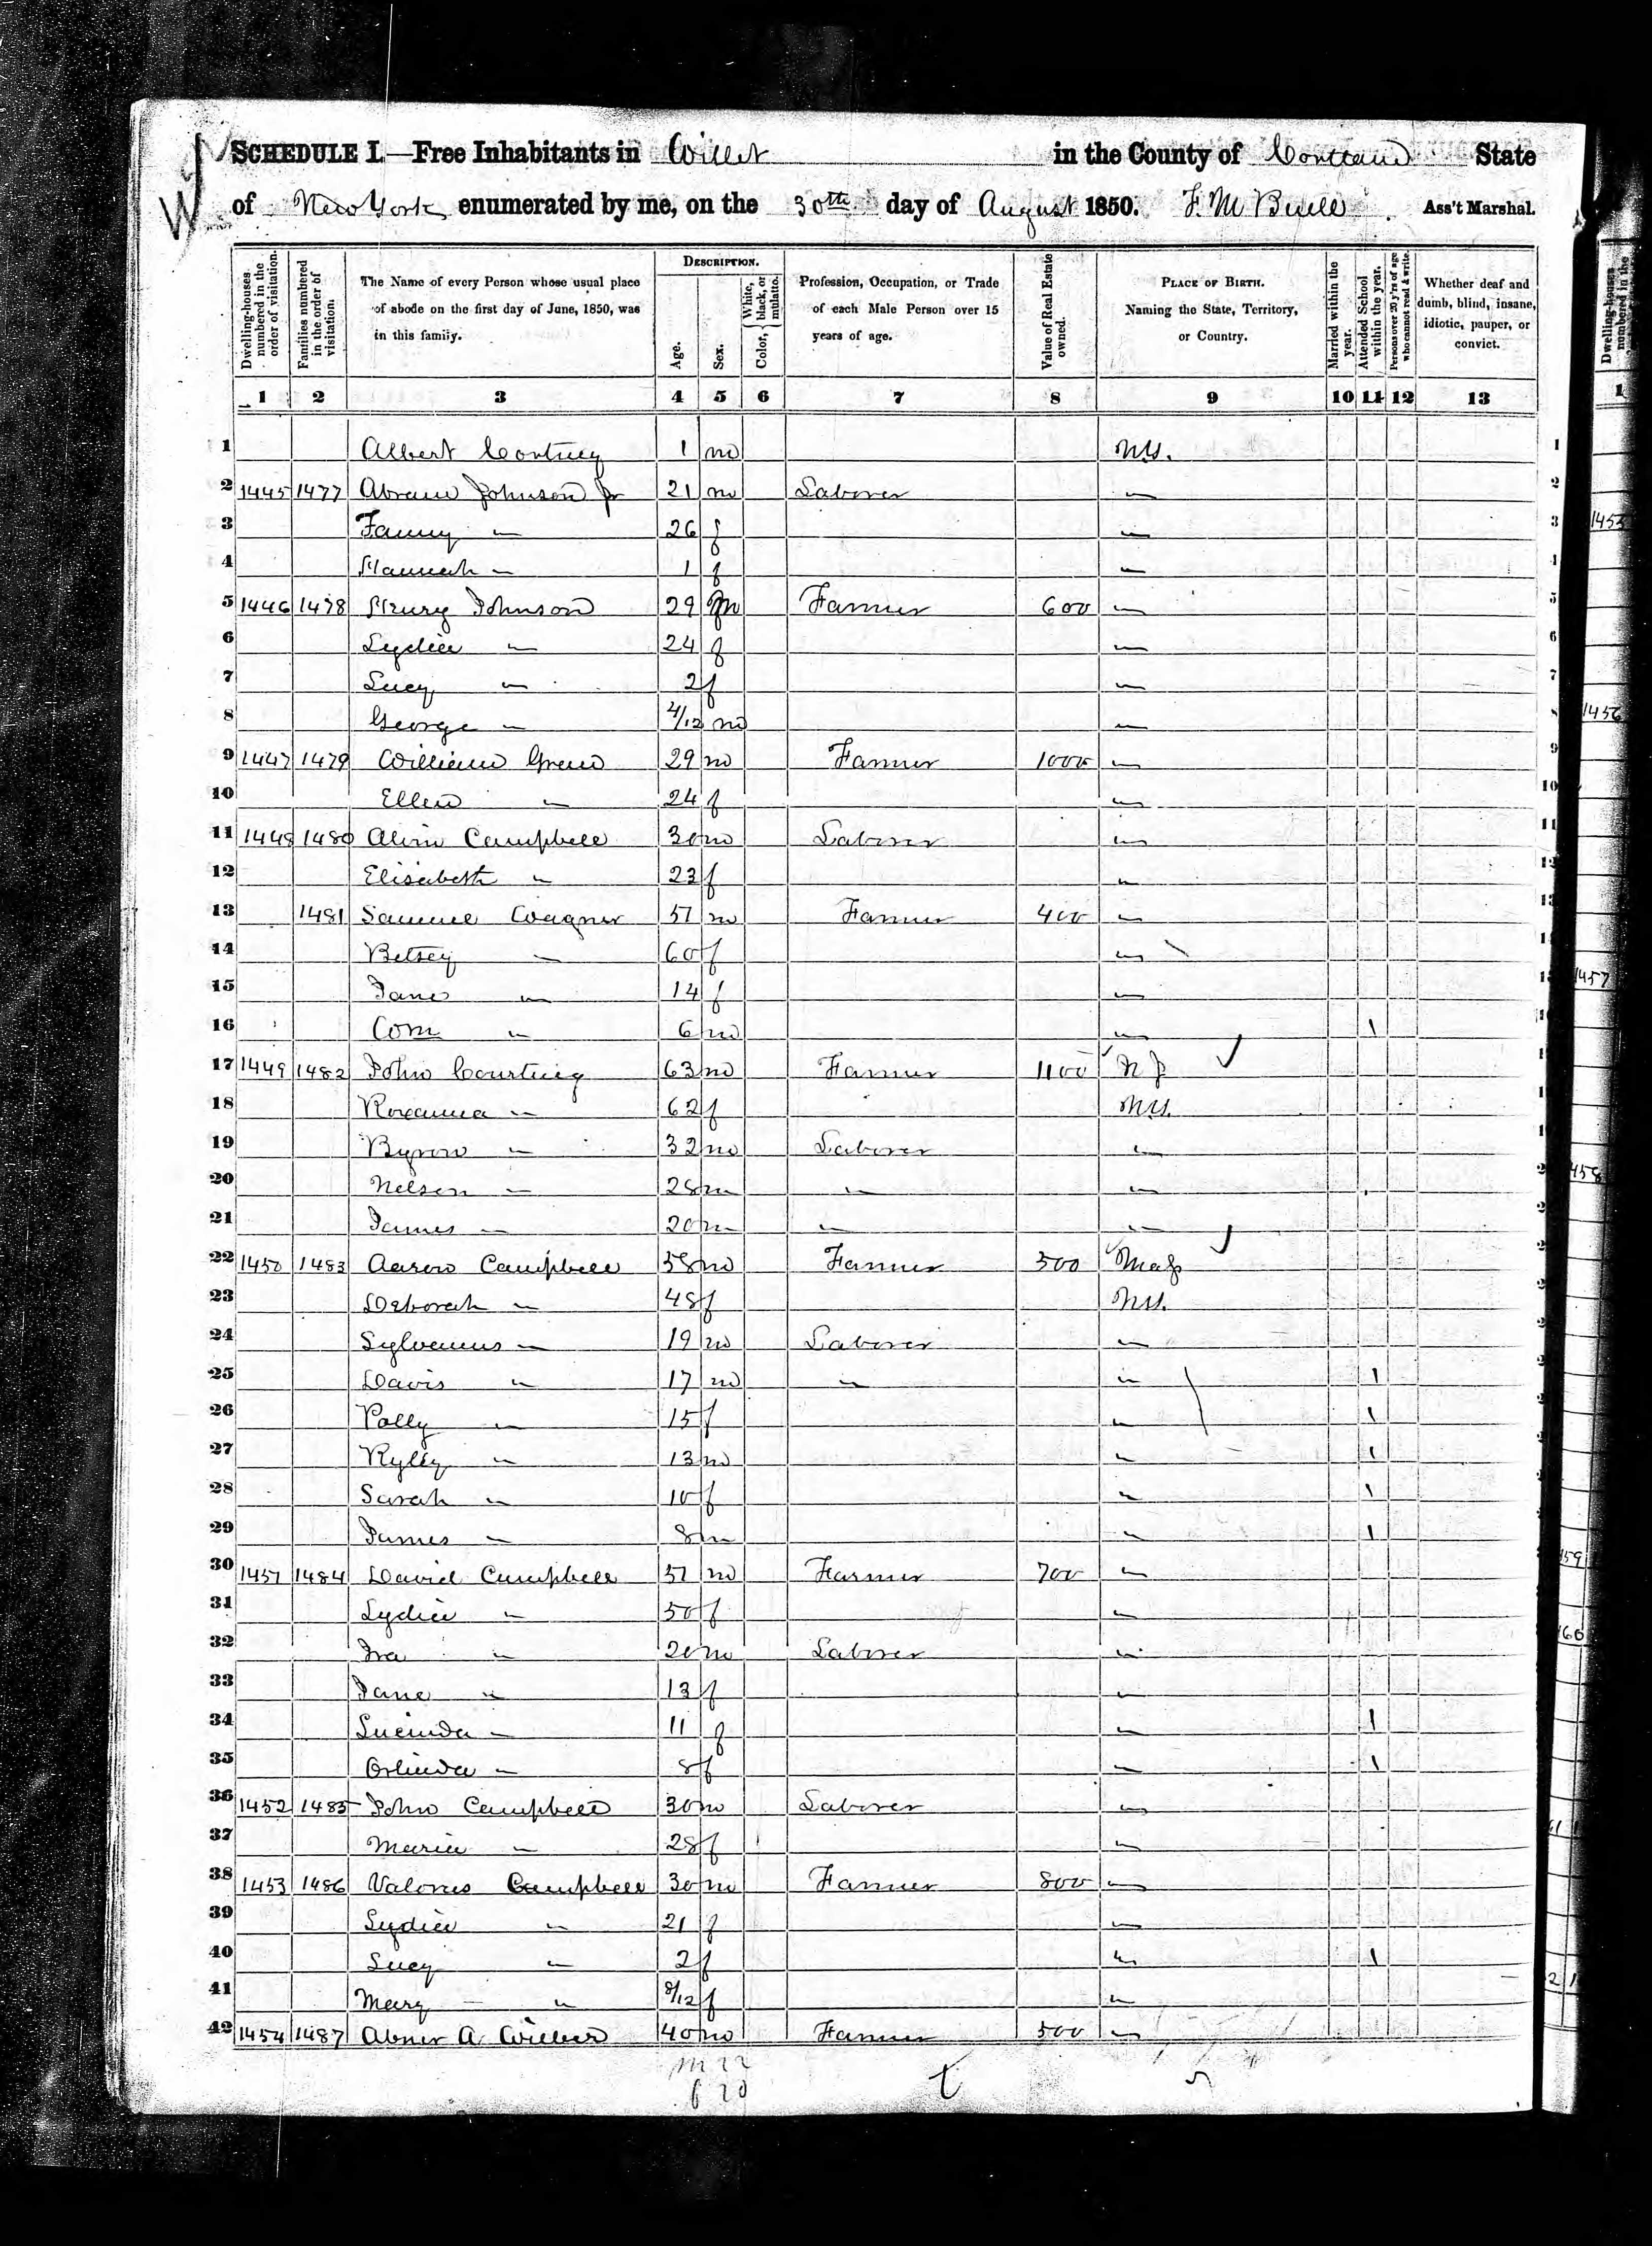 SCHEDULE I.—Free Inhabitants in Willet in the County of Cortland State
of New York enumerated by me, on the 30th day of August 1850. F. M Buell Ass't Marshal.
Dwelling-houses numbered in the order of visitation.
Families numbered in the order of visitation.
The Name of every Person whose usual place of abode on the first day of June, 1850, was in this family.
DESCRIPTION.
Age.
Sex.
Color, White, black, or mulatto.
Profession, Occupation, or Trade of each Male Person over 15 years of age.
Value of Real Estate owned.
PLACE OF BIRTH. Naming the State, Territory, or Country.
Married within the year.
Attended School within the year.
Persons over 20 y'rs of age who cannot read & write.
Whether deaf and dumb, blind, insane, idiotic, pauper, or convict.
1 2 3 4 5 6 7 8 9 10 11 12 13
1 Albert Courtney 1 m N.Y.
2 1445 1477 Abram Johnson Jr 21 m Laborer "
3 Fanny " 26 f "
4 Hannah " 1 f "
5 1446 1478 Henry Johnson 29 m Farmer 600 "
6 Lydia " 24 f "
7 Lucy " 2 f "
8 George " 4/12 m "
9 1447 1479 William Green 29 m Farmer 1000 "
10 Ellen " 24 f "
11 1448 1480 Alvin Campbell 30 m Laborer "
12 Elisabeth " 23 f "
13 1481 Samuel Wagner 51 m Farmer 400 "
14 Betsey " 60 f "
15 Jane " 14 f "
16 Corn " 6 m " 1
17 1449 1482 John Courtney 63 m Farmer 1100 N J
18 Roxanna " 62 f N.Y.
19 Byron " 32 m Laborer "
20 Nelson " 28 m " "
21 James " 20 m " "
22 1450 1483 Aaron Campbell 58 m Farmer 500 Mass
23 Deborah " 48 f N.Y.
24 Sylvanus " 19 m Laborer "
25 Davis " 17 m " " 1
26 Polly " 15 f " 1
27 Ryley " 13 m " 1
28 Sarah " 10 f " 1
29 James " 8 m " 1
30 1451 1484 David Campbell 51 m Farmer 700 "
31 Lydia " 50 f "
32 Ira " 20 m Laborer "
33 Jane " 13 f "
34 Lucinda " 11 f " 1
35 Orlinda " 8 f " 1
36 1452 1485 John Campbell 30 m Laborer "
37 Maria " 28 f "
38 1453 1486 Valorus Campbell 30 m Farmer 800 "
39 Lydia " 21 f "
40 Lucy " 2 f " 1
41 Mary " 8/12 f "
42 1454 1487 Abner A. 40 m Farmer 500 "
m 22
f 20